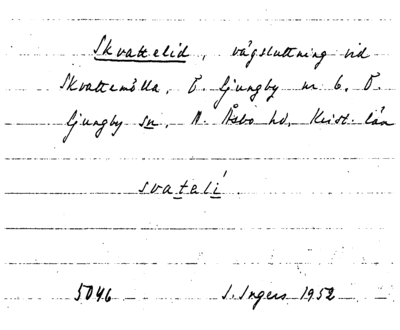 Skvattelid, vägsluttning vid
Skvattemölla, Ö. Ljungby nr 6, Ö.
Ljungby sn, N. Åsbo hd, Krist. län
svatelí.
5046 I. Ingers 1952